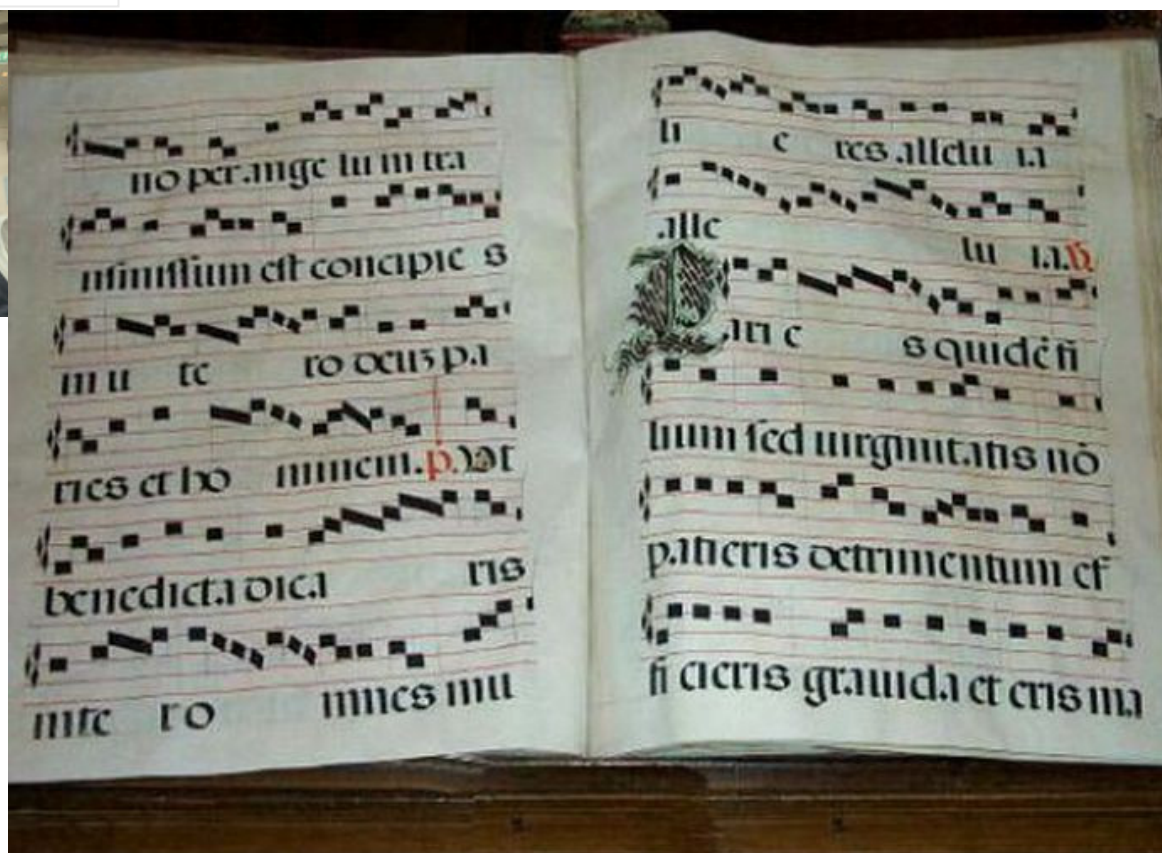 no per angelum tra
nsmissum est concipie s
in u te ro deus pa
ries et ho minem. p. Vt
benedicta dica ris
inte r o mnes mu
li e res allelu ia
alle lu ia. V
Pari e s quidē fi
lium sed uirginitatis nō
patieris detrimentum ef
ficieris grauida et eris ma